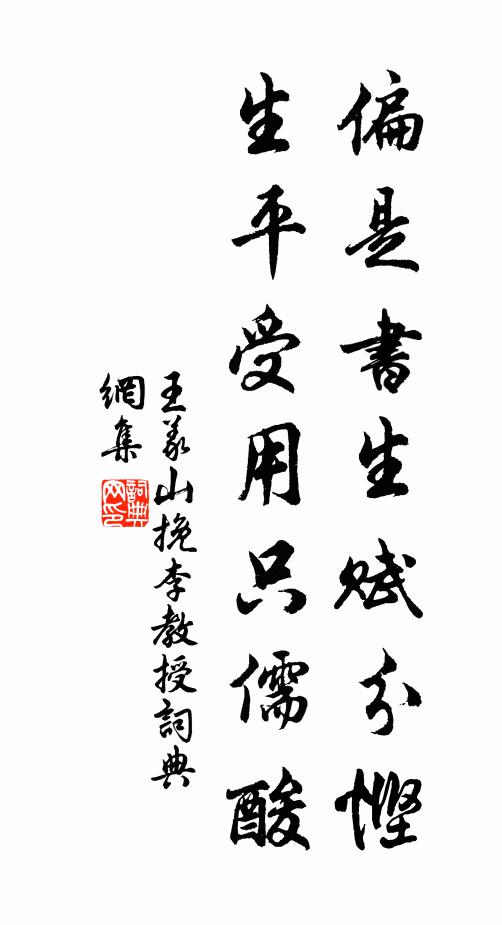 偏是書生賦分慳
生平受用只儒酸
王義山挽李教授詞典
網集
詞典
网印